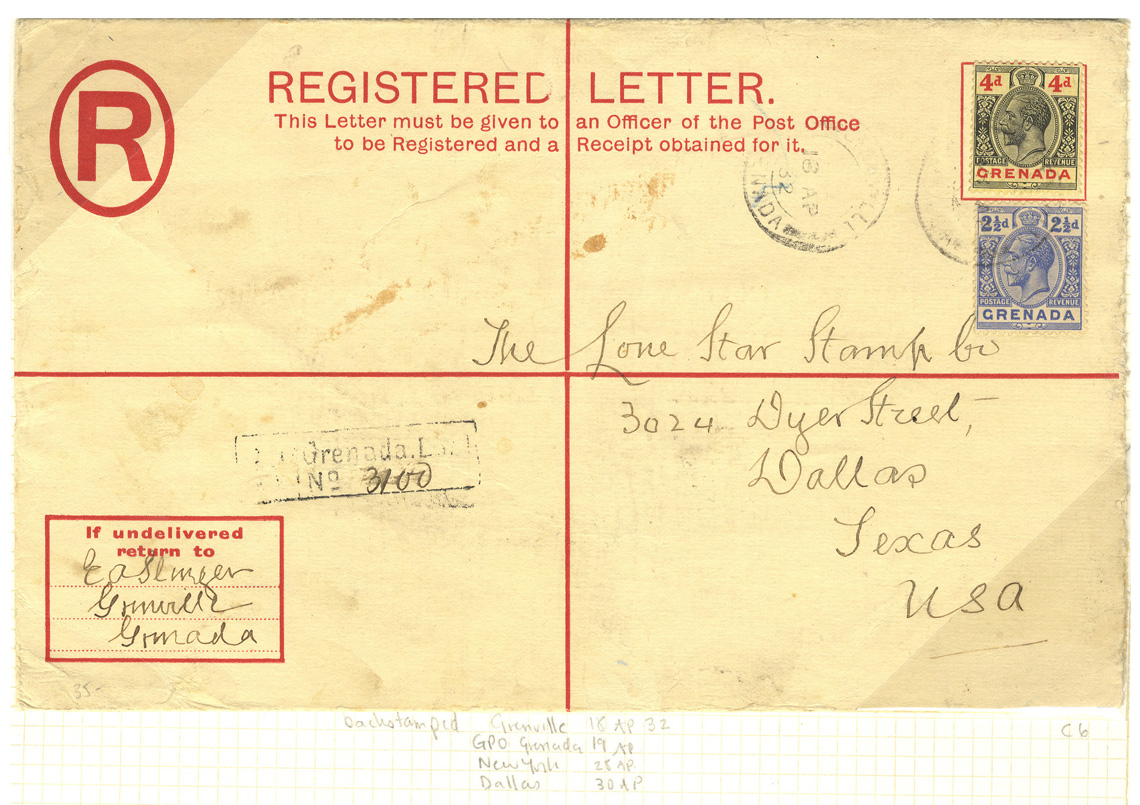 R
REGISTERED LETTER.
This Letter must be given to an Officer of the Post Office
to be Registered and a Receipt obtained for it.
4d 4d
POSTAGE REVENUE
GRENADA
18 AP
32
2½d 2½d
POSTAGE REVENUE
GRENADA
The Lone Star Stamp Co
3024 Dyer Street,
Dallas
Texas
USA
Grenada. L.
No 3100
If undelivered
return to
Grenville
Grenada
35-
backstamped Grenville 18 AP 32
GPO Grenada 19 AP
New York 28 AP
Dallas 30 AP
C6